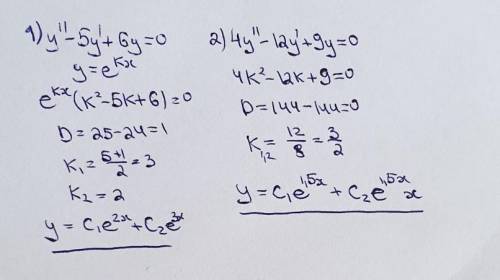 1) y'' - 5y' + 6y = 0
y = e^{kx}
e^{kx}(k² - 5k + 6) = 0
D = 25 - 24 = 1
k₁ = \frac{5+1}{2} = 3
k₂ = 2
y = C₁e^{2x} + C₂e^{3x}
2) 4y'' - 12y' + 9y = 0
4k² - 12k + 9 = 0
D = 144 - 144 = 0
k_{1,2} = \frac{12}{8} = \frac{3}{2}
y = C₁e^{1,5x} + C₂e^{1,5x} x